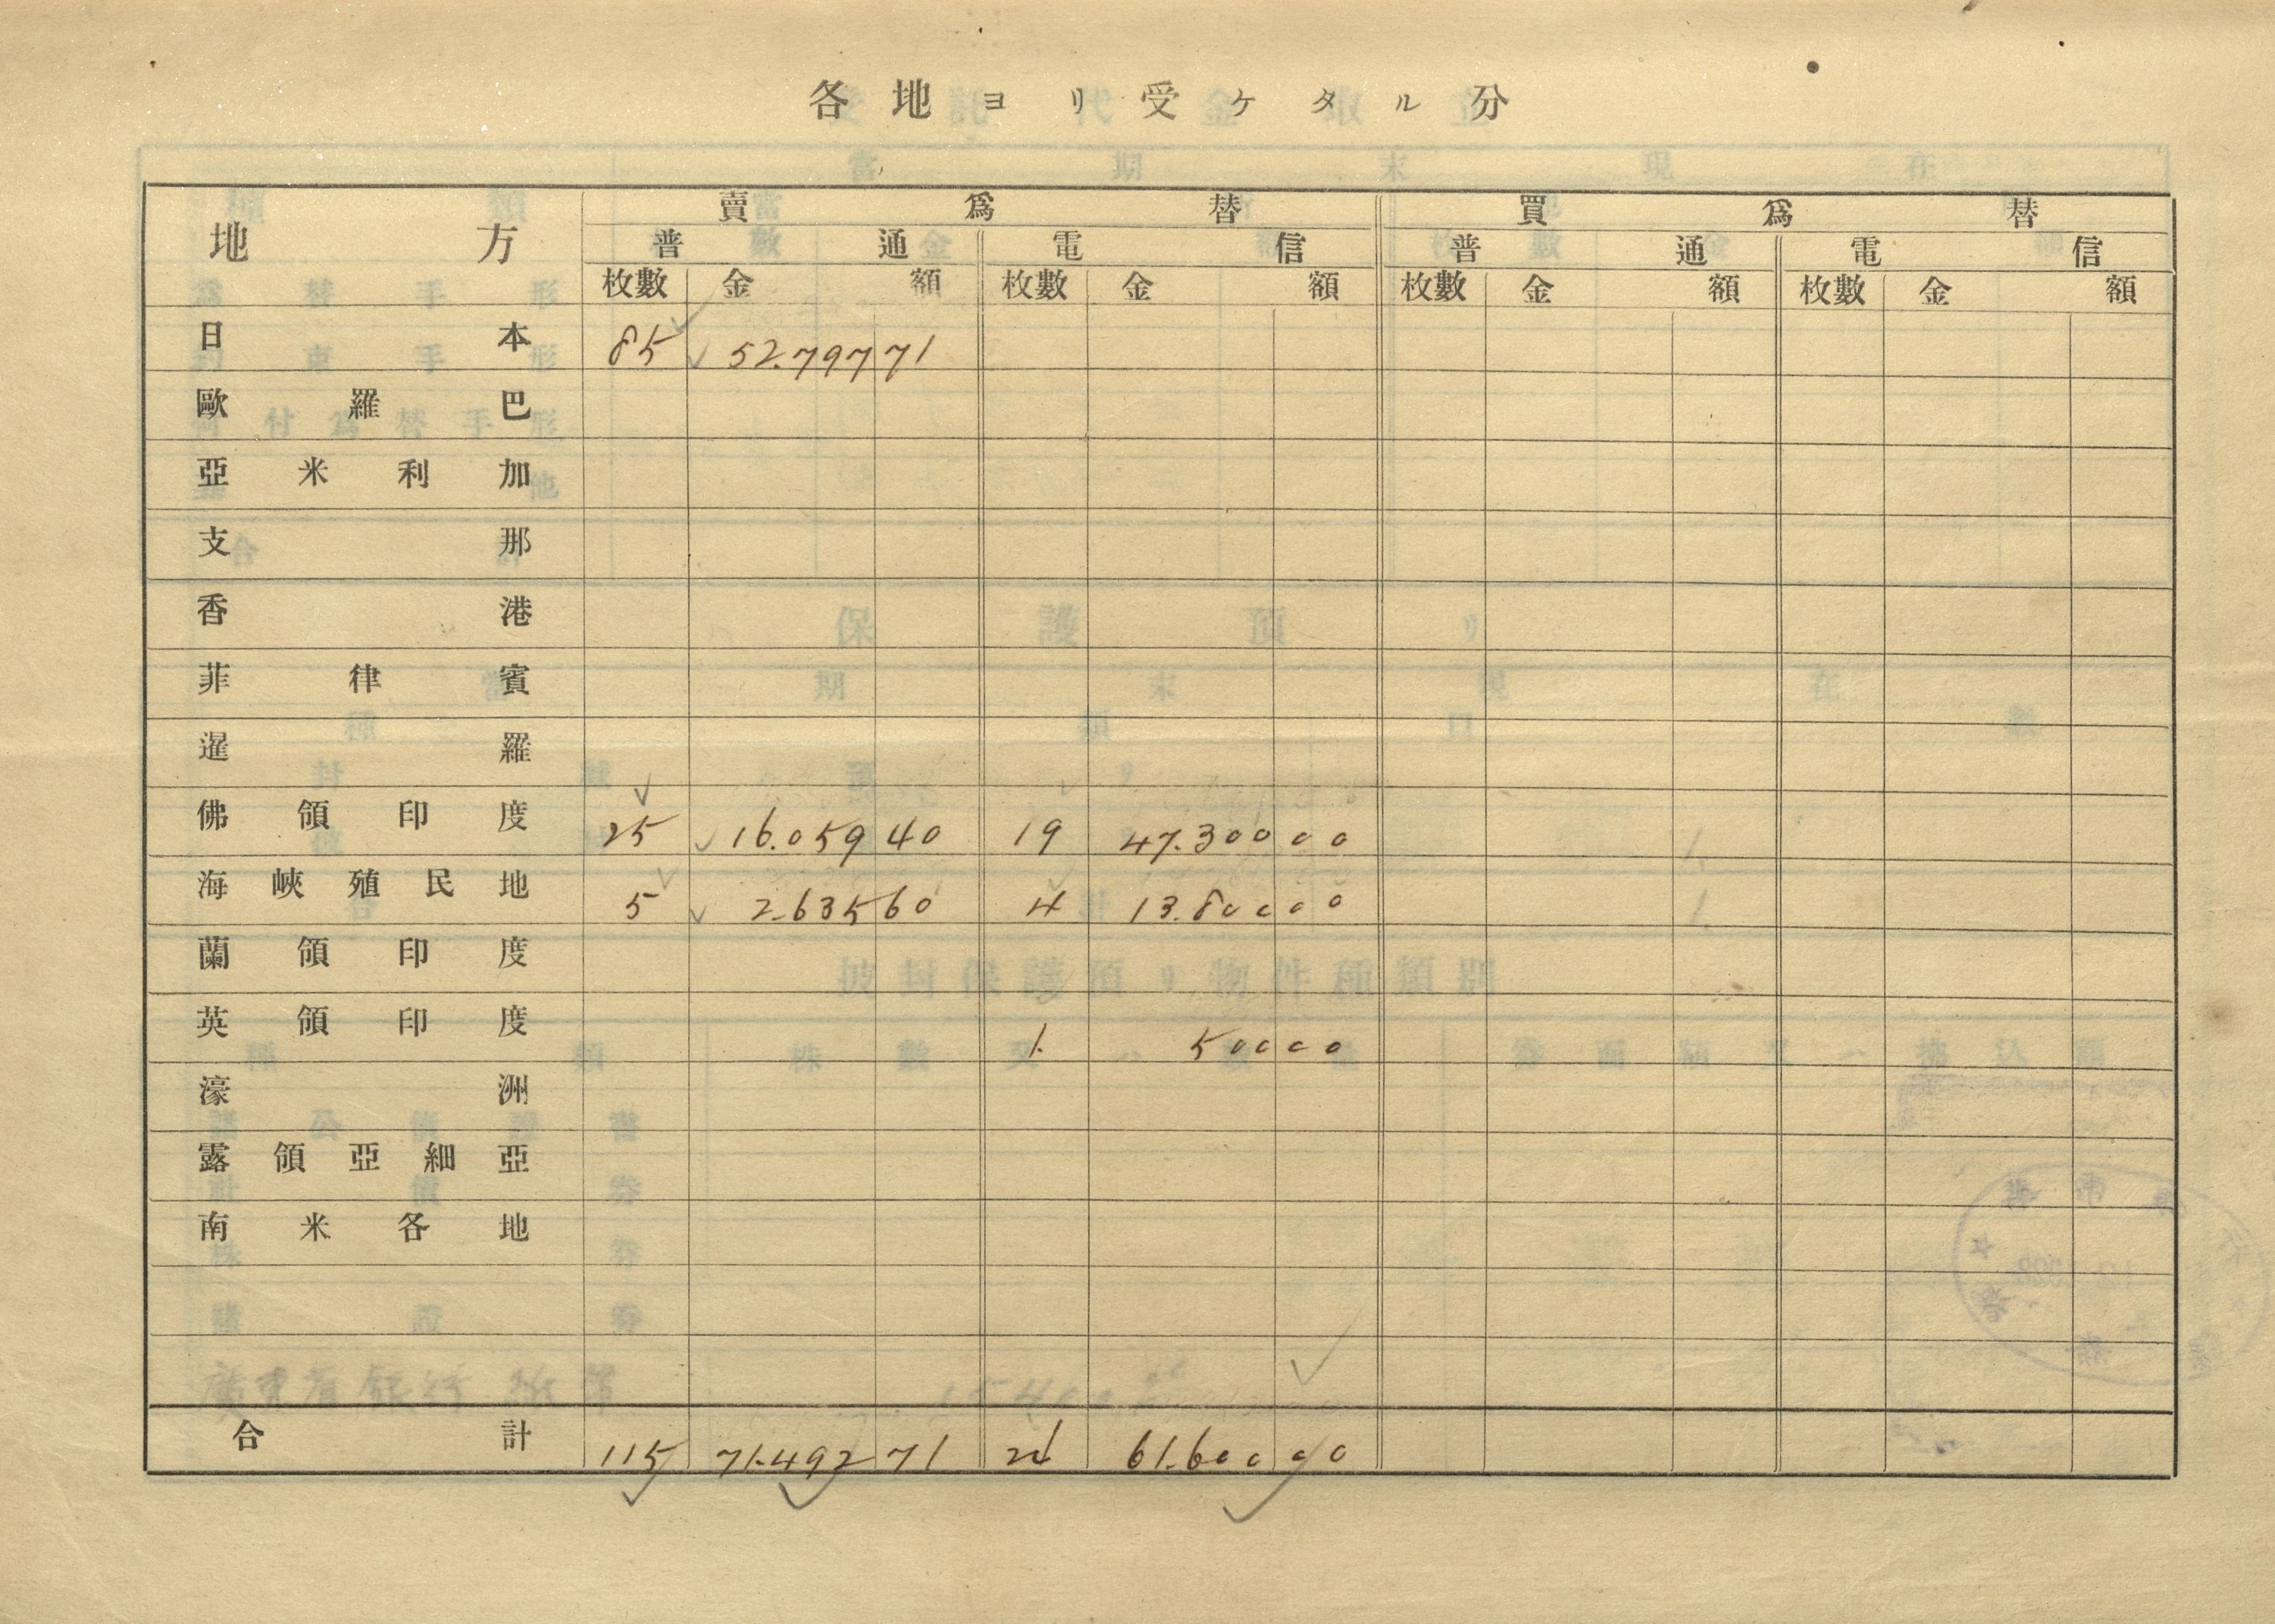 各地ヨリ受ケタル分
地方 賣爲替 買爲替
普通 電信 普通 電信
枚數 金額 枚數 金額 枚數 金額 枚數 金額
日本 85 52.797 71
歐羅巴
亞米利加
支那
香港
菲律賓
暹羅
佛領印度 25 16.059 40 19 47.300 00
海峽殖民地 5 2.635 60 4 13.800 00
蘭領印度
英領印度 1. 500 00
濠洲
露領亞細亞
南米各地
合計 115 71.492 71 24 61.600 00